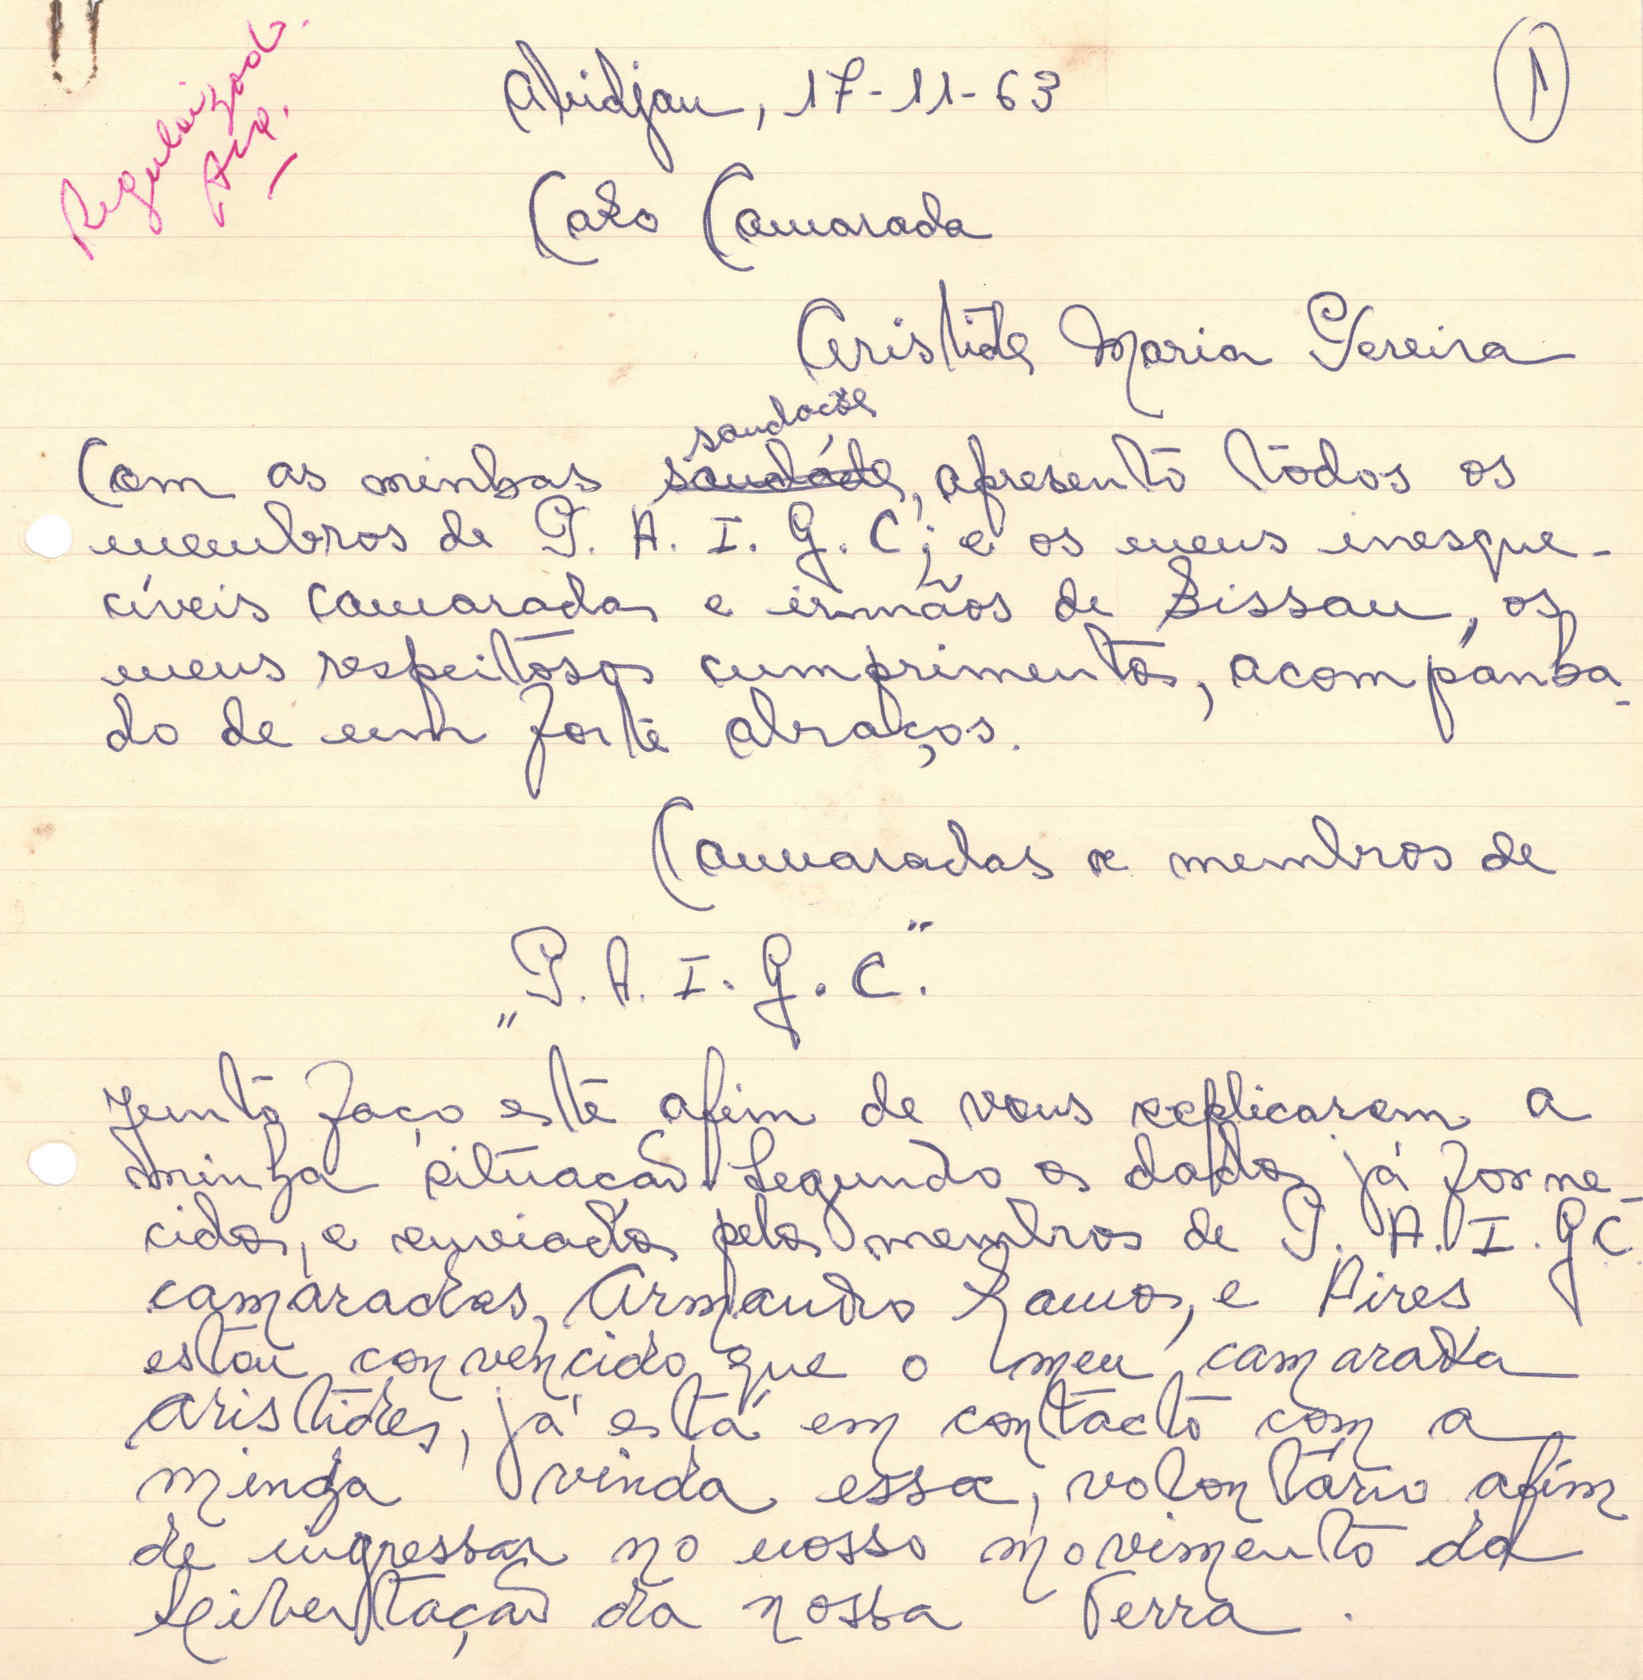 Regularizado.
Arq.
1
Abidjan, 17-11-63
Caro Camarada
Aristides Maria Pereira
saudacões
Com as minhas saudáds, apresento tôdos os
membros de P. A. I. G. C; e os meus inesque-
cíveis camaradas e irmãos de Bissau, os
meus respeitosos cumprimentos, acompanha-
do de um forte abraços.
Camaradas e membros de
"P. A. I. G. C."
Junto faço este afim de vous explicarem a
minha situacão. Segundo os dados já forne-
cidos, e enviados pelos membros de P. A. I. G C
camaradas, Armando Ramos, e Aires
estou convencido que o meu camarada
Aristides, já está em contacto com a
minha vinda essa, volontário afim
de ingressar no nosso movimento da
Leibertação da nossa Terra.